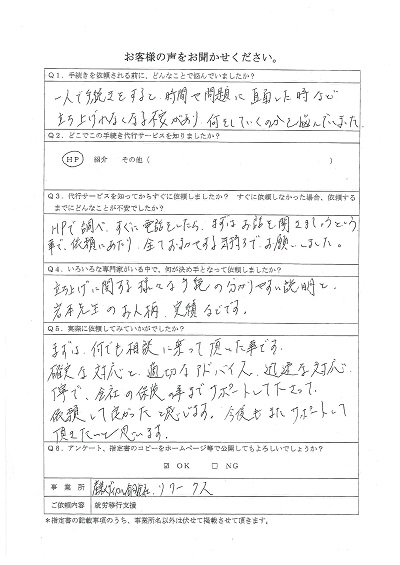 お客様の声をお聞かせください。
Q1．手続きを依頼される前に、どんなことで悩んでいましたか？
一人で手続きをすると、時間や問題に直面した時など
立ち上げれなくなる不安があり、何をしていくのかを悩んでいました。
Q2．どこでこの手続き代行サービスを知りましたか？
HP 紹介 その他（ ）
Q3．代行サービスを知ってからすぐに依頼しましたか？ すぐに依頼しなかった場合、依頼する
までにどんなことが不安でしたか？
HPで調べ、すぐに電話をしたら、まずはお話を聞きましょうという
事で、依頼にあたり、全てお任せする気持ちでお願いしました。
Q4．いろいろな専門家がいる中で、何が決め手となって依頼しましたか？
立ち上げに関する様々な手続の分かりやすい説明と、
岩本先生のお人柄、実績などです。
Q5．実際に依頼してみていかがでしたか？
まずは、何でも相談に乗って頂いた事です。
確実な対応と、適切なアドバイス、迅速な対応、
丁寧で、会社の保険の事までサポートしてくださって、
依頼して良かったと感じます。今後もまたサポートして
頂きたいと思います。
Q6．アンケート、指定書のコピーをホームページ等で公開してもよろしいでしょうか？
☑ OK □ NG
事業所 リワークス
ご依頼内容 就労移行支援
＊指定書の記載事項のうち、事業所名以外は伏せて掲載させて頂きます。